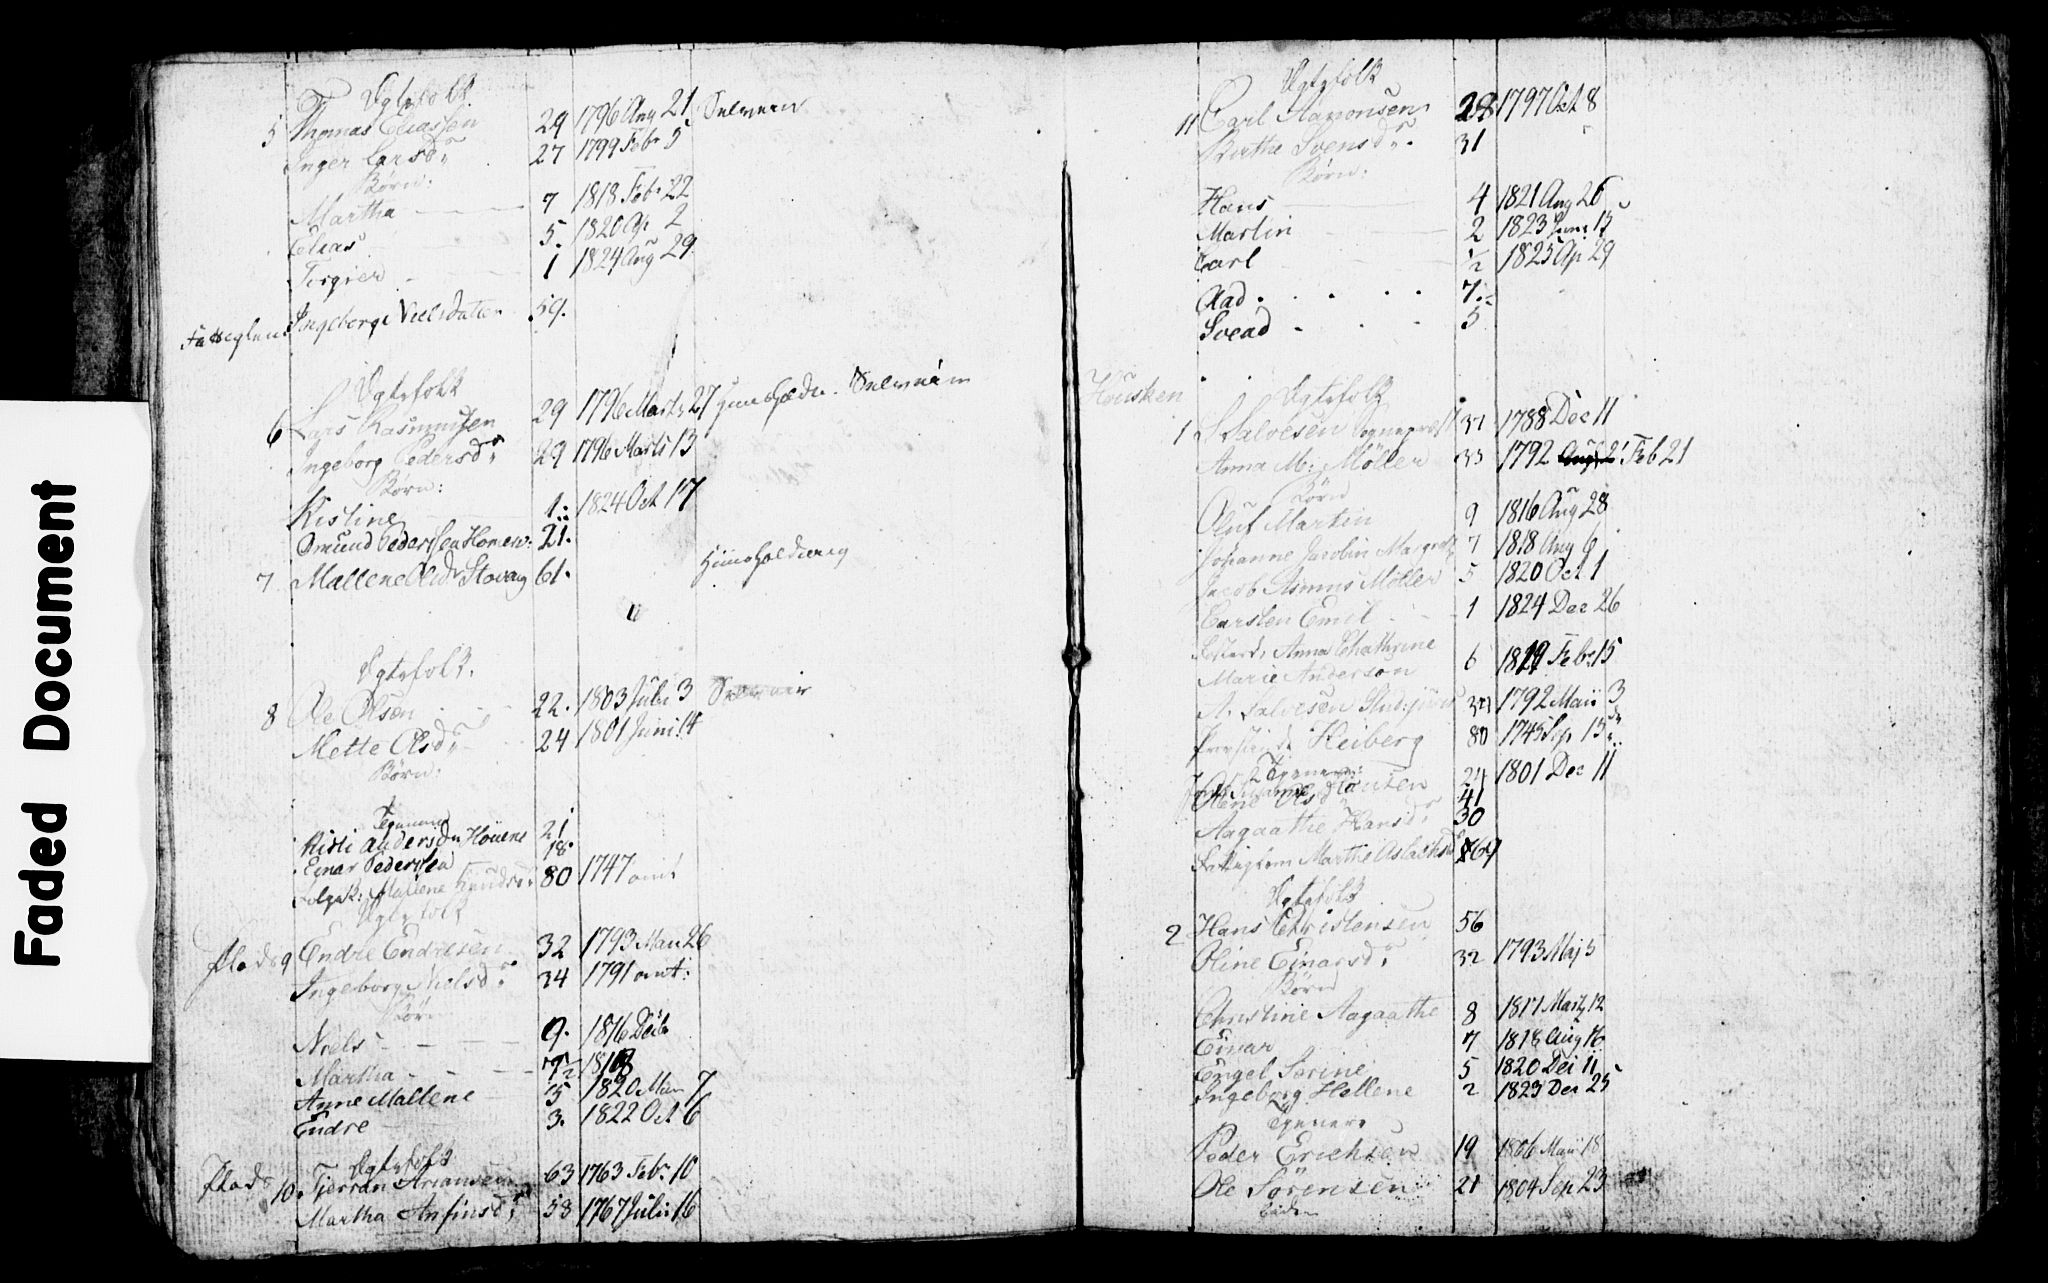 Faded Document
Ægtefolk
5 Thomas Eliassen 29 1796 Aug 21 Selveier
Inger Larsdr 27 1799 Febr 5
Børn:
Martha 7 1818 Febr 22
Elias 5. 1820 Ap 2
1 1824 Aug 29
Ingeborg Nielsdatter 59.
Ægtefolk
6 Lars Rasmussen 29 1796 Marts 27
Ingeborg Pedersdr 29 1796 Marts 13
Børn:
Kistine 1. 1824 Oct 17
Omund Pedersen 21.
7 Mallene Olsdr 61.
Ægtefolk.
8 Ole Olsen 22. 1803 Juli 3
Mette Olsdr 24 1801 Juni 14
Børn:
Tjenere
Kisti Andersdr 21
Einar Pedersen 18.
Mallene 80 1747
Ægtefolk
Plads 9 Endre Endresen 32 1793 Mau 26
Ingeborg Nielsdr 34 1791
Børn
Niels 9. 1816
Martha 1818
Anne Mallene 5 1820 7
Endre 3. 1822 Oct 6
Ægtefolk
Plads 10. 63 1763 Febr 10
Martha Anfinsdr 58 1767 Juli 16
Ægtefolk
11 Carl 28 1797 Oct 8
Berthe Svensdr 31
Børn:
Hans 4 1821 Aug 26
Martin 2 1823 Juni 15
Carl ½ 1825 Ap 29
Aad 7
Svend 5
Housken
Ægtefolk
1 S Salvesen Sognepr 37 1788 Dec 11
Anna M: Möller 33 1792 Feb 21
Børn
Oluf Martin 9 1816 Aug 28
Johanne Jacobin Margreth 7 1818 Aug 6
Jacob Asmus Möller 5 1820 Oct 1
Carsten Emil 1 1824 Dec 26
Anna Chathrine
Marie Anderson 6 1819 Febr 15
A. Salvesen 1792 Maii 3
Heiberg 80 1745 Sep 15
Tjenere:
Hansen 24 1801 Dec 11
Olene Olsdr 41
Aagaathe Hansdr 30
Marthe Aslachsdr 69
Ægtefolk
2 Hans Christensen 56
Oline Einarsdr 32 1793 Maj 5
Børn
Christine Aagaathe 8 1817 Marts 12
Einar 7 1818 Aug 16
Engel Serine 5 1820 Dec 11
Ingeborg Hellene 2 1823 Dec 25
Tjenere
Peder Erichsen 19 1806 Maii 18
Ole Sörensen 21 1804 Sep 23